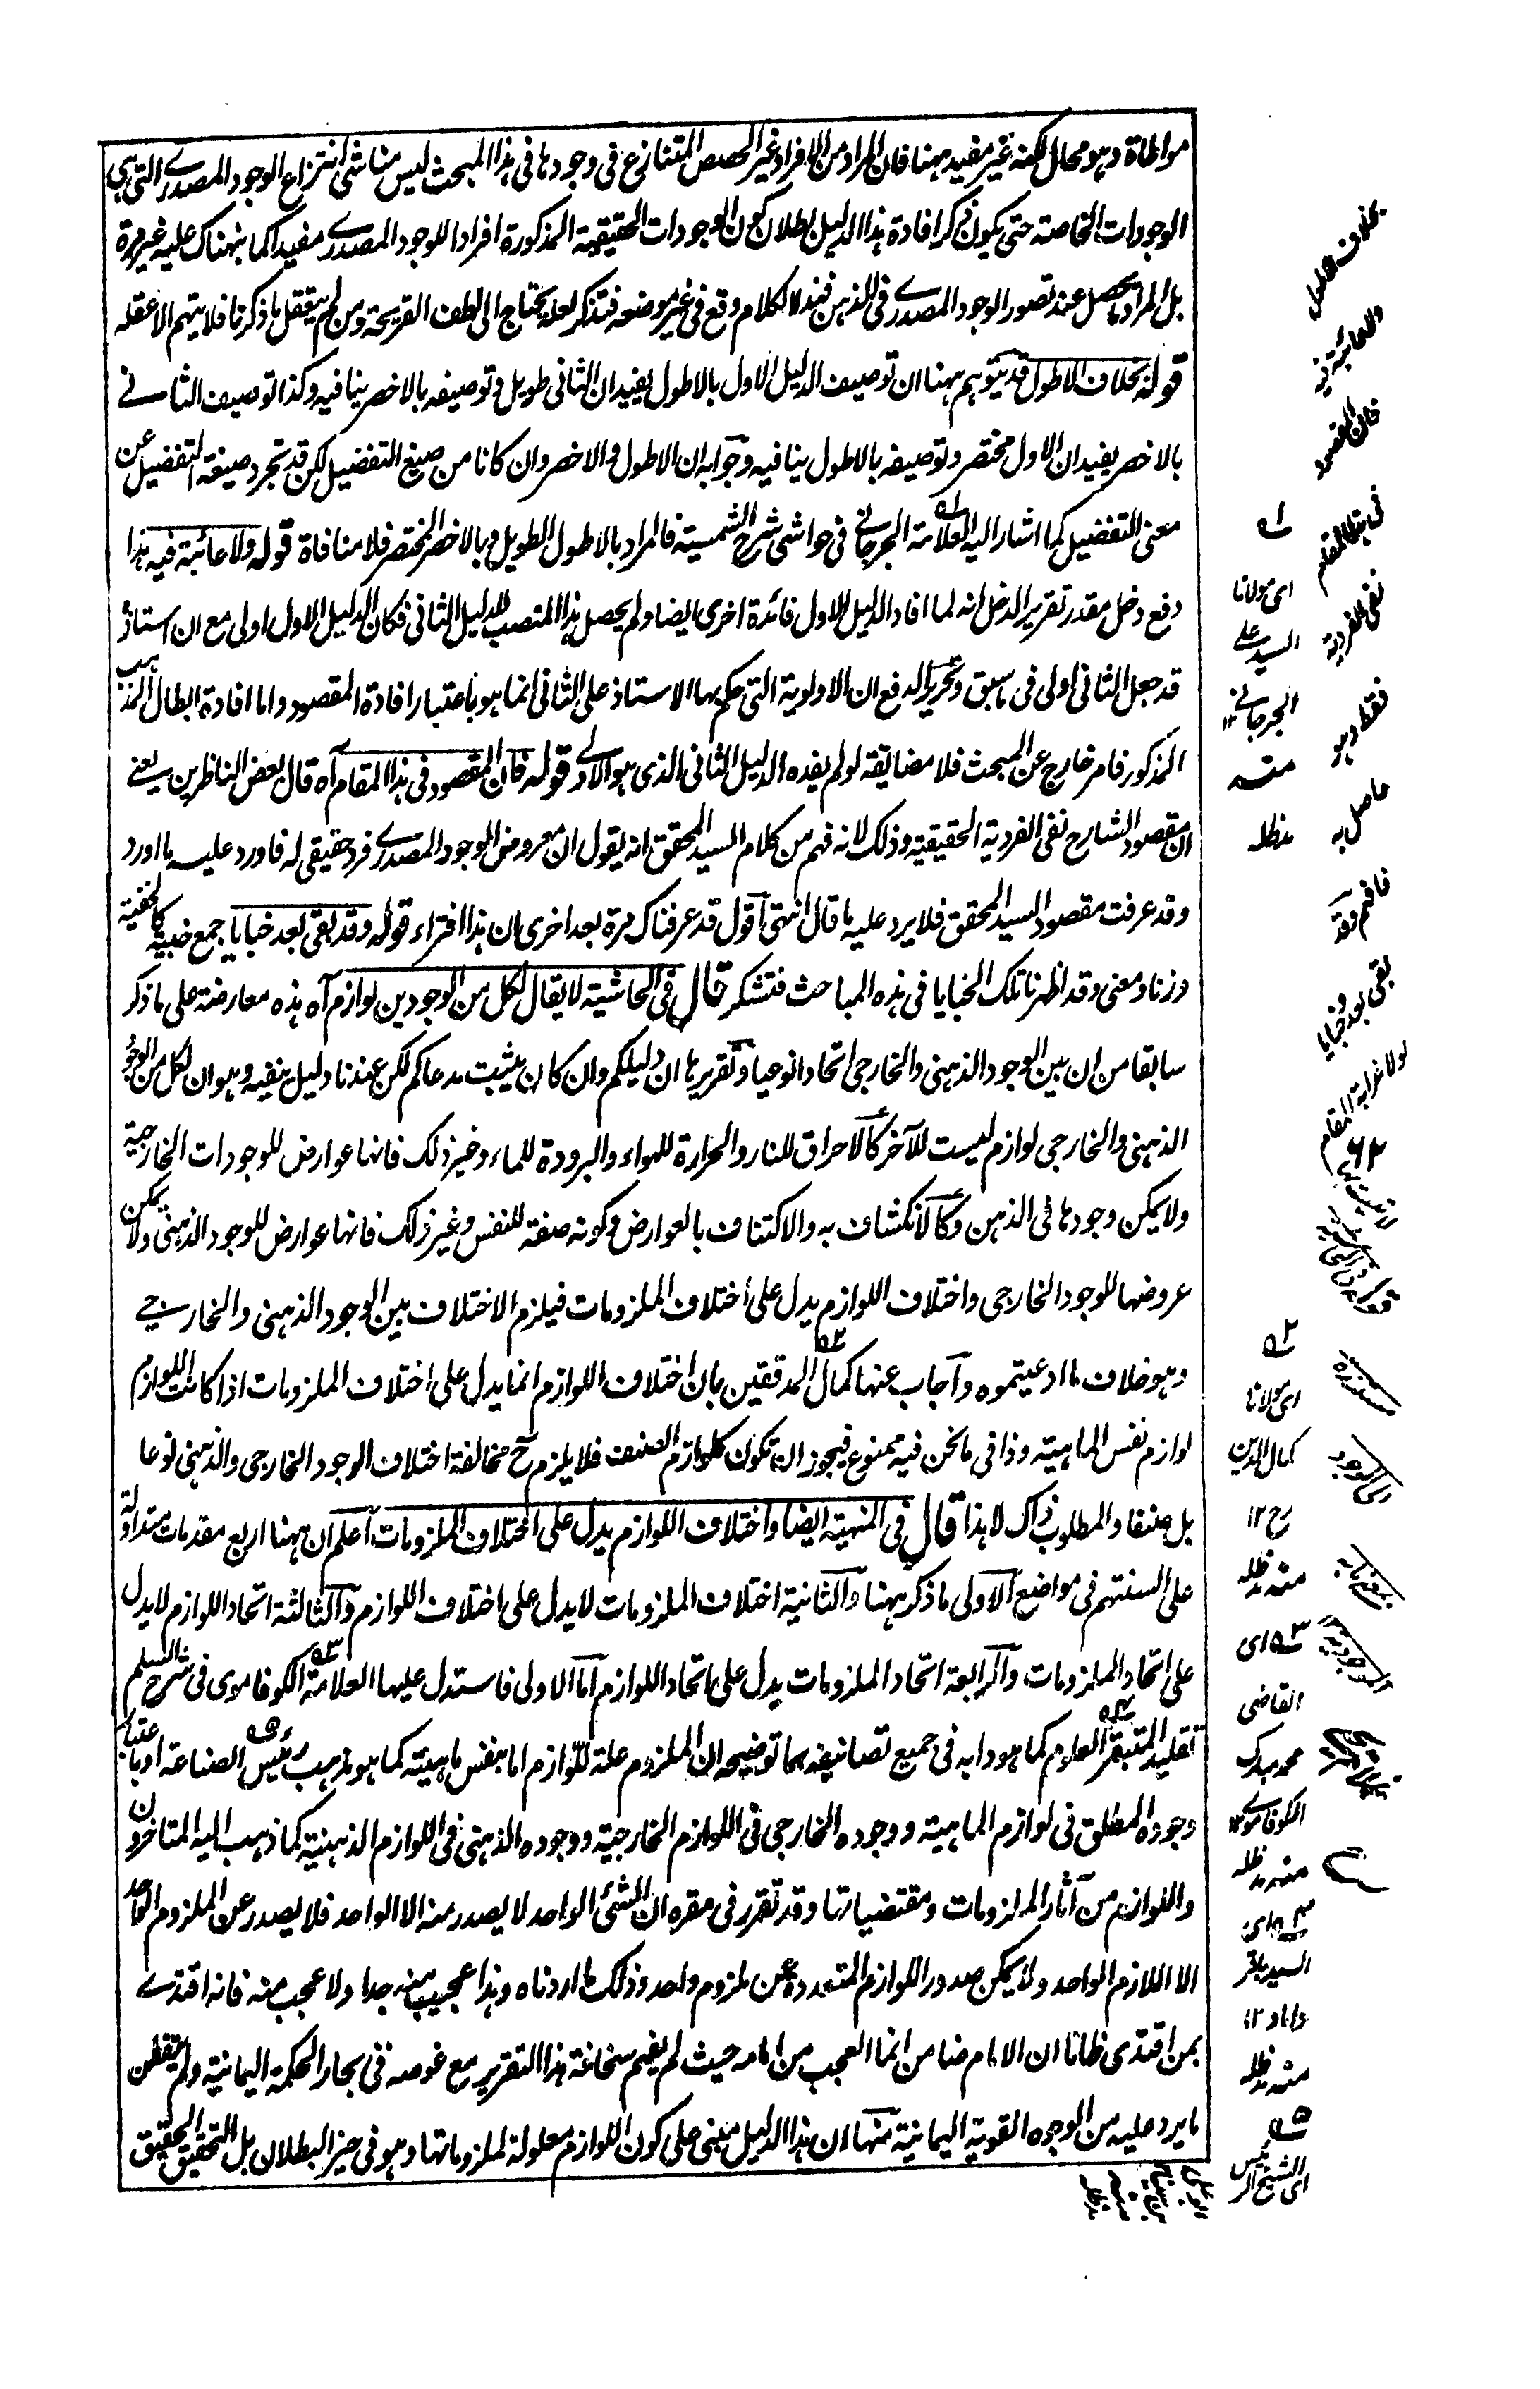 مواطاة وهو محال لكنه غير مفيد ههنا فان المراد من الافراد غير الحصص المتنازع فى وجودها فى هذا المبحث ليس مناشى انتزاع الوجود المصدرے التى هى
الوجودات الخاصة حتى يكون ذكر افادة هذا الدليل بطلان كون الوجودات الحقيقية المذكورة افرادا للوجود المصدرے مفيدا كما نبهناك عليه غير مرة
بل المراد ما يحصل عند تصور الوجود المصدرے فى الذهن فهذا الكلام وقع فى غير موضعه فتذكر لعله يحتاج الى لطف القريحة ومن لم يتعقل ما ذكرنا فلا يتهم الا عقله
قوله بخلاف الاطول قد يتوهم ههنا ان توصيف الدليل الاول بالاطول يفيد ان الثانى طويل وتوصيفه بالاخصر ينافيه وكذا توصيف الثانے
بالاخصر يفيد ان الاول مختصر وتوصيفه بالاطول ينافيه وجوابه ان الاطول والاخصر وان كانا من صيغ التفضيل لكن قد تجرد صيغة التفضيل عن
معنى التفضيل كما اشار اليه العلامة الجرجانے فى حواشى شرح الشمسية فالمراد بالاطول الطويل وبالاخصر المختصر فلا منافاة قوله ولا عائبة فيه هذا
دفع دخل مقدر تقرير الدخل انه لما افاد الدليل الاول فائدة اخرى ايضا ولم يحصل هذا المنصب للدليل الثانى فكان الدليل الاول اولى مع ان استاذ
قد جعل الثانى اولى فى ما سبق وتحرير الدفع ان الاولوية التى حكم بها الاستاذ على الثانى انما هو باعتبار افادة المقصود واما افادة ابطال المذهب
المذكور فامر خارج عن المبحث فلا مضايقة لو لم يفده الدليل الثانى الذى هو الاولے قوله فان المقصود فى هذا المقام آه قال بعض الناظرين يعنے
ان مقصود الشارح نفى الفردية الحقيقية وذلك لانه فهم من كلام السيد المحقق انه يقول ان معروض الوجود المصدرے فرد حقيقى له فاورد عليه ما اورد
وقد عرفت مقصود السيد المحقق فلا يرد عليه ما قال انتهى اقول قد عرفناك مرة بعد اخرى ان هذا افتراء قوله وقد بقى بعد خبايا جمع خبية كالخفية
وزنا ومعنى وقد اظهرنا تلك الخبايا فى هذه المباحث فتشكر قال فى الحاشية لا يقال لكل من الوجودين لوازم آه هذه معارضة على ما ذكر
سابقا من ان بين الوجود الذهنى والخارجى اتحادا نوعيا وتقريرها ان دليلكم وان كان يثبت مدعاكم لكن عندنا دليل ينفيه وهو ان لكل من الوجود
الذهنى والخارجى لوازم ليست للآخر كالاحراق للنار والحرارة للهواء والبرودة للماء وغير ذلك فانها عوارض للوجودات الخارجية
ولا يمكن وجودها فى الذهن وكالانكشاف به والاكتناف بالعوارض وكونه صفة للنفس وغير ذلك فانها عوارض للوجود الذهنى ولا يمكن
عروضها للوجود الخارجى واختلاف اللوازم يدل على اختلاف الملزومات فيلزم الاختلاف بين الوجود الذهنى والخارجے
وهو خلاف ما ادعيتموه واجاب عنها كمال المدققين بان اختلاف اللوازم انما يدل على اختلاف الملزومات اذا كانت اللوازم
لوازم نفس الماهية وذا فى ما نحن فيه ممنوع فيجوز ان تكون كلوازم الصنف فلا يلزم ح مخالفة اختلاف الوجود الخارجى والذهنى نوعا
بل صنفا والمطلوب ذاك لا هذا قال فى المنهية ايضا واختلاف اللوازم يدل على اختلاف الملزومات اعلم ان ههنا اربع مقدمات متداولة
على السنتهم فى مواضع الاولى ما ذكر ههنا والثانية اختلاف الملزومات لا يدل على اختلاف اللوازم والثالثة اتحاد اللوازم لا يدل
على اتحاد الملزومات والرابعة اتحاد الملزومات يدل على اتحاد اللوازم اما الاولى فاستدل عليها العلامة الكوفاموى فى شرح السلم
تقليد المتبقر العلوم كما هو دابه فى جميع تصانيفه بما توضيحه ان الملزوم علة للوازم اما بنفس ماهيته كما هو مذهب رئيس الصناعة او باعتبار
وجوده المطلق فى لوازم الماهية ووجوده الخارجى فى اللوازم الخارجية ووجوده الذهنى فى اللوازم الذهنية كما ذهب اليه المتاخرون
واللوازم من آثار الملزومات ومقتضياتها وقد تقرر فى مقره ان الشئ الواحد لا يصدر منه الا الواحد فلا يصدر عن الملزوم الواحد
الا اللازم الواحد ولا يمكن صدور اللوازم المتعددة عن ملزوم واحد وذلك ما اردناه وهذا عجيب منه جدا ولا عجب منه فانه اقتدے
بمن اقتدى ظانا ان الامام ضامن انما العجب من امامه حيث لم يفهم سخافة هذا التقرير مع غوصه فى بحار الحكمة اليمانية ولم يتفطن
ما يرد عليه من الوجوه القوية اليمانية منها ان هذا الدليل مبنى على كون اللوازم معلولة لملزوماتها وهو فى حيز البطلان بل التحقيق الحقيق
بخلاف الاطول
ولا عائبة فيه
فان المقصود
فى هذا المقام
نفى الفردية
فقط وهو
حاصل به
فافهم وقد
بقى بعد خبايا
لولا غرابة المقام
ا ه
اى مولانا
السيد على
الجرجانے ١٢
منه
مدظله
٢ ه
اى مولانا
كمال الدين
رح ١٢
منه مدظله
٣ ه اى
القاضى
محمد مبارك
الكوفاموے ١٢
منه مدظله
٤ ه اى
السيد باقر
داماد ١٢
منه مدظله
٥ ه
اى الشيخ الرئيس